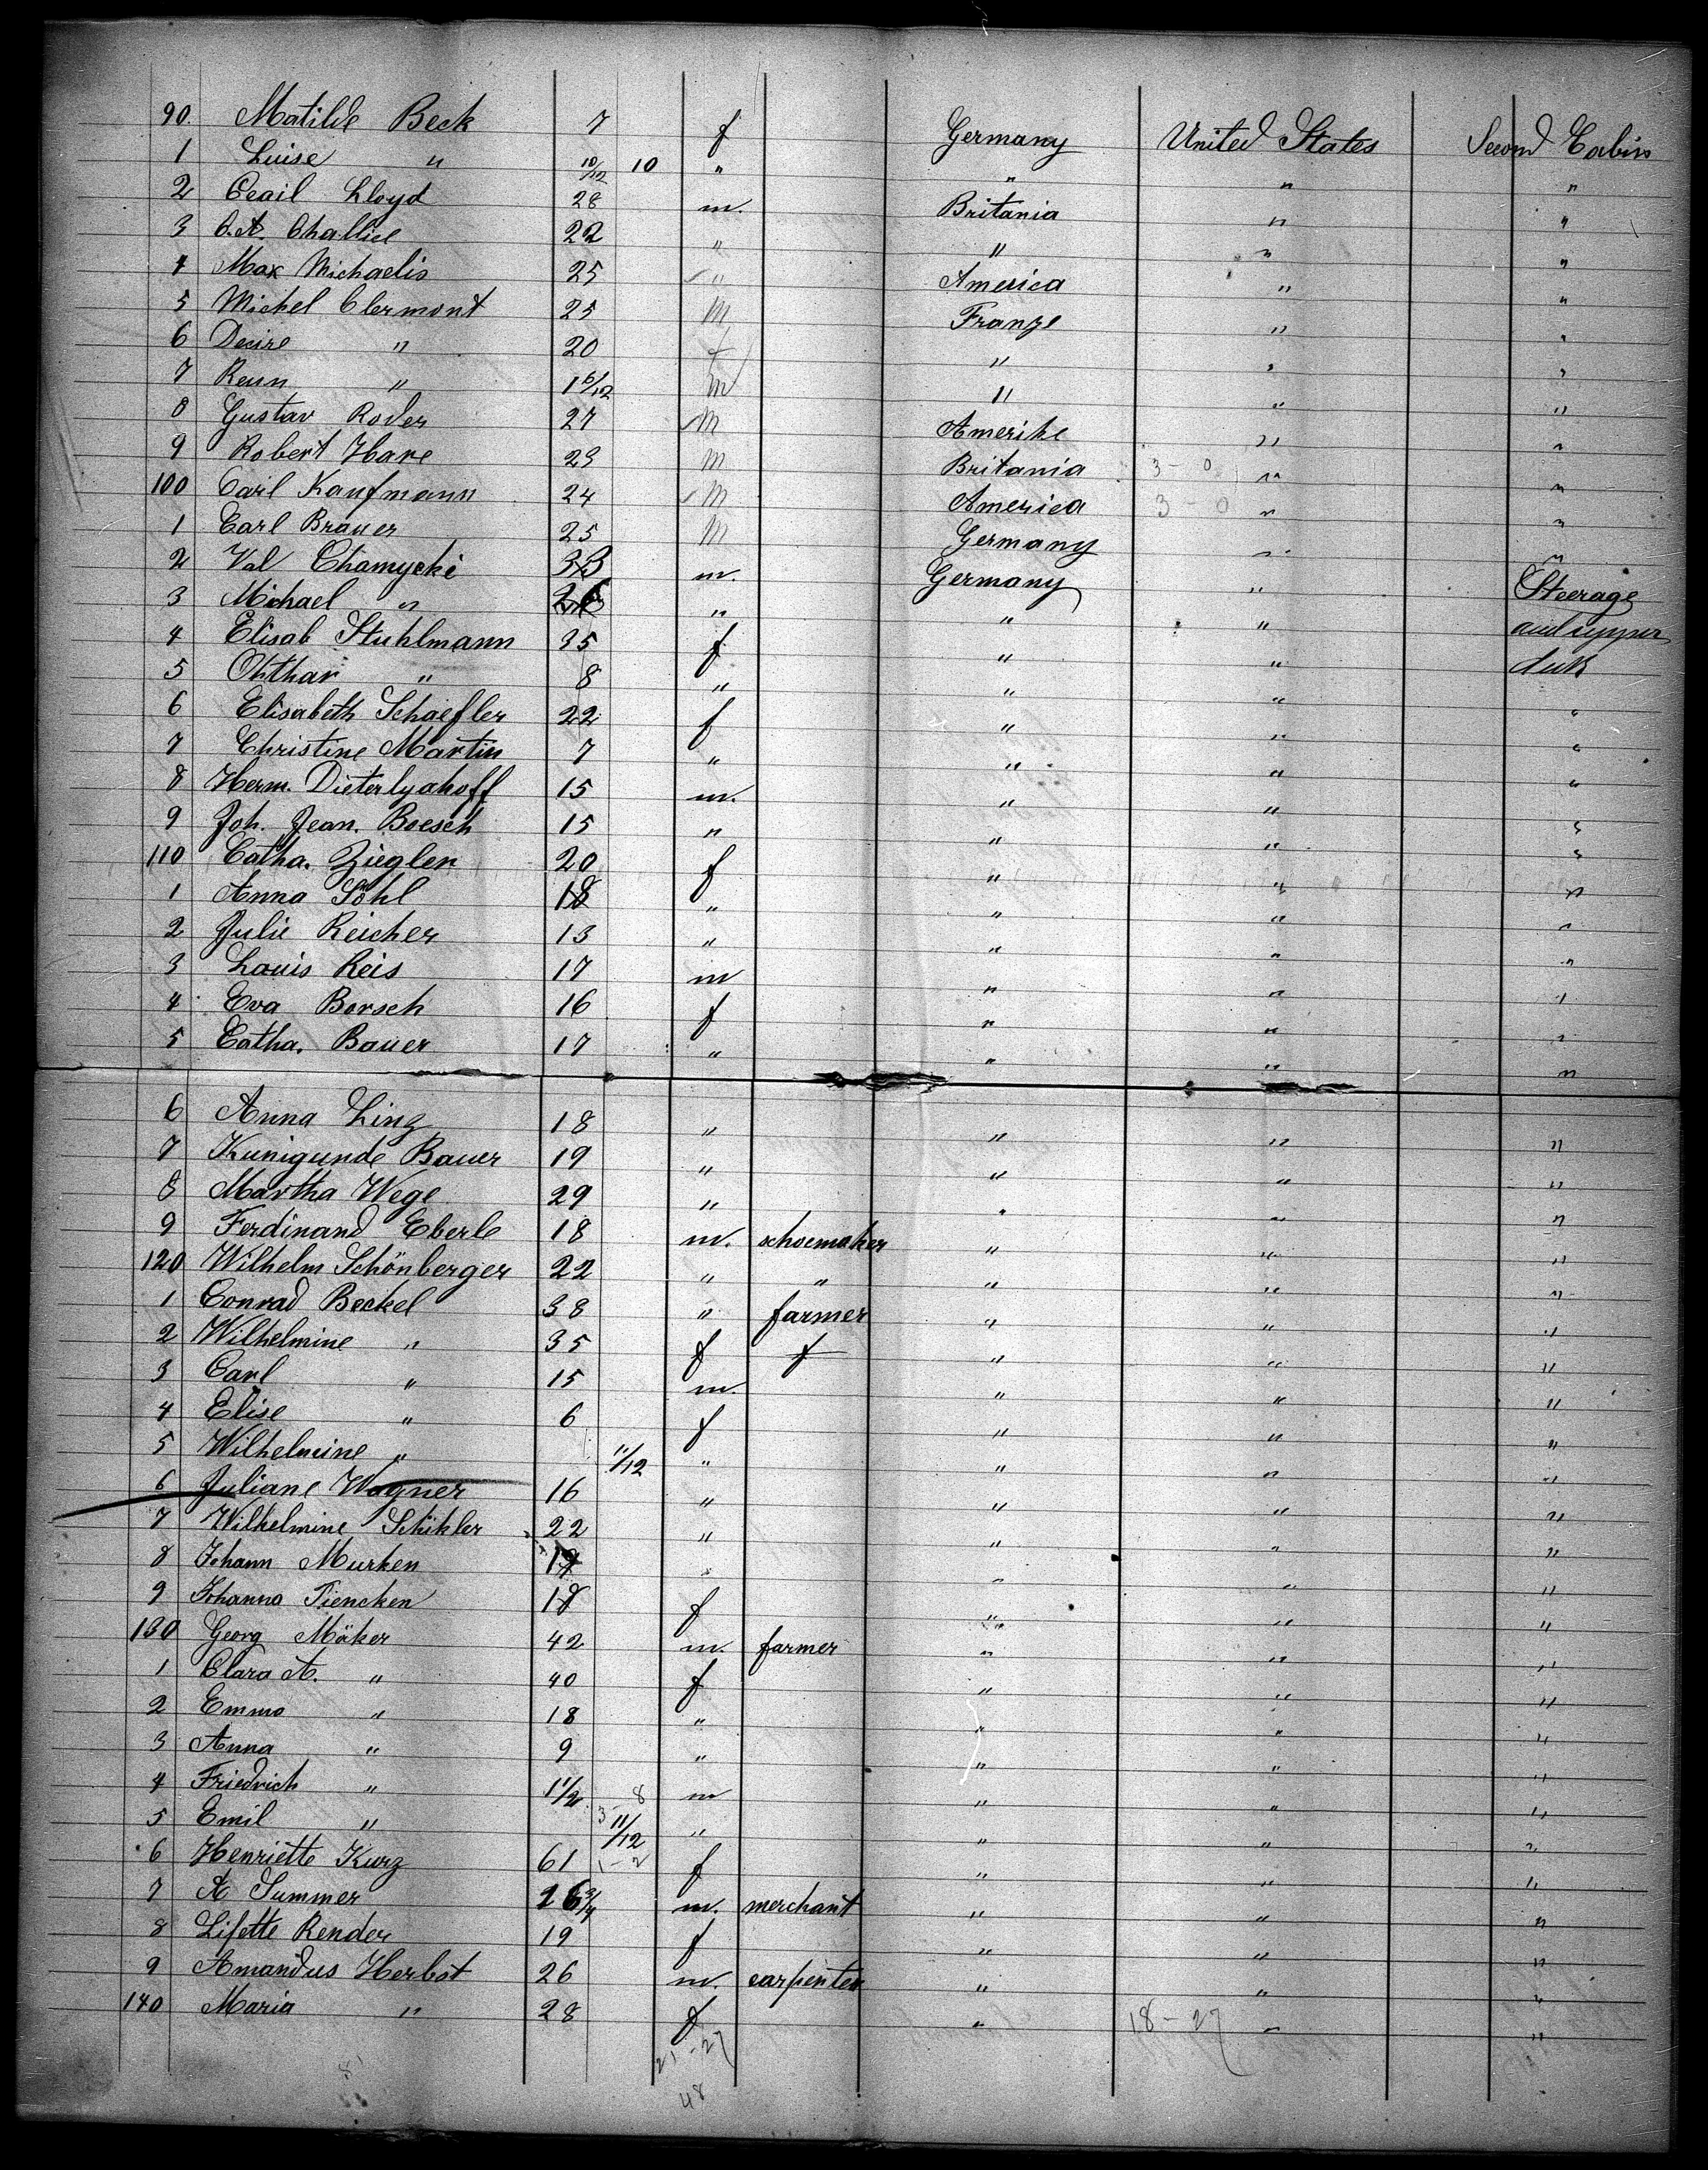 90 Matilde Beck 7 f Germany United States Second Cabin
1 Luise " 10/12 10 " " " "
2 Ceail Lloyd 28 m. Britania " "
3 C.A. Challice 22 " " " "
4 Max Michaelis 25 " America " "
5 Mickel Clermont 25 M Franze " "
6 Desire " 20 f " " "
7 " 1 6/12 M " " "
8 Gustav Roder 27 M Amerike " "
9 Robert Hare 23 M Britania 3 - 0 " "
100 Carl Kaufmann 24 M America 3 - 0 " "
1 Carl Brauer 25 M Germany " "
2 Val Chamycki 33 m. Germany " Steerage
3 Michael " 26 " " " and upper
4 Elisab Stuhlmann 35 f " " deck
5 Ohthar " 8 " " " "
6 Elisabeth Schaefler 22 f " " "
7 Christine Martin 7 " " " "
8 Herm. Dieterlyohoff 15 m. " " "
9 Joh. Jean. Boesch 15 " " " "
110 Catha. Ziegler 20 f " " "
1 Anna Söhl 18 " " " "
2 Julie Reicher 13 " " " "
3 Louis Reis 17 m " " "
4 Eva Borsch 16 f " " "
5 Catha. Bauer 17 " " " "
6 Anna Linz 18 " " " "
7 Kunigunde Bauer 19 " " " "
8 Martha Wege 29 " " " "
9 Ferdinand Eberle 18 m. schoemaker " " "
120 Wilhelm Schönberger 22 " " " " "
1 Conrad Beckel 38 " farmer " " "
2 Wilhelmine " 35 f f " " "
3 Carl " 15 m. " " "
4 Elise " 6 f " " "
5 Wilhelmine " 11/12 " " " "
6 Juliane Wagner 16 " " " "
7 Wilhelmine Schikler 22 " " " "
8 Johann Murken 19 " " " "
9 Johanna Tiencken 18 f " " "
130 Georg Mäker 42 m. farmer " " "
1 Clara A. " 40 f " " "
2 Emma " 18 " " " "
3 Anna " 9 " " " "
4 Friedrich " 1 1/2 m " " "
5 Emil " 11/12 " " " "
6 Henriette Kurz 61 f " " "
7 A Summer 26 3/4 m. merchant " " "
8 Lisette Render 19 f " " "
9 Amandus Herbst 26 m. carpenter " " "
140 Maria " 28 f " 18 - 27 " "
21 - 27
48